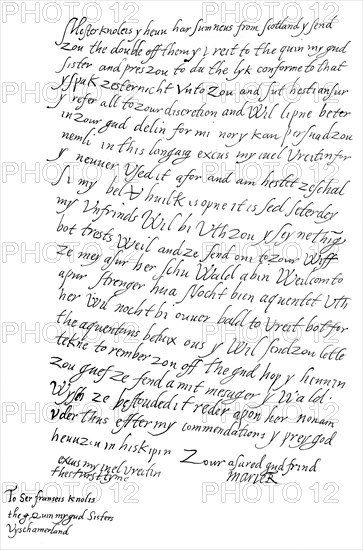 Mester knoleis y heuu har sum neus from scotland y send
zou the double off them y vreit to the quin my gud
sister and pres zou to du the lyk conforme to that
y spak zesternicht vnto zou and sut hesti ansur
y refer all to zour discretion and wil lipne beter
in zour gud delin for mi nor y kan persuad zou
nemli in this langasg excus my iuel vreitin for
y neuuer vsed it afor and am hestet ze schal
si my bel vhuilk is opne it is sed seterdey
my vnfrinds wil bi vth zou y sey nething
bot trests weil and ze send oni to zour wiff
ze mey asur her schu wald a bin weilcom to
apur strenger hua nocht bien aquentet vth
her wil nocht bi ouuer bald to vreit bot for
the aquentans betuix ous y wil send zou letle
tekne to rember zou off the gud hop y heuu in
zou guef ze fend a mit mesager y wald
wysh ze bestouded it reder apon her nor ani
vder thus effter my commendations y prey god
heuu zou in his kipin
Zour asured gud frind
Marie R
excus my iuel vreitin
thes furst tyme
To Ser fransis knolis
the q Quin my gud sisters
vyschamerland
PHOTO 12